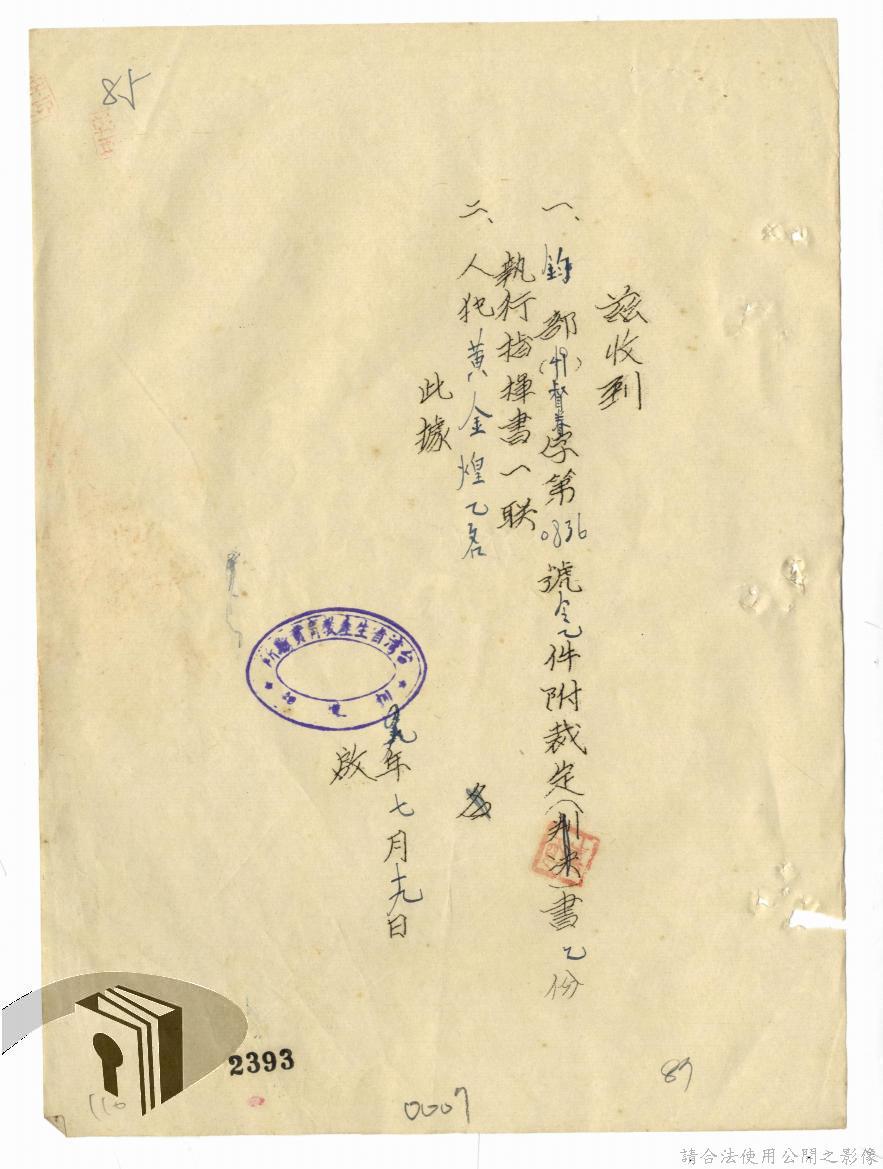 85
茲收到
一、鈞部(49)督春字第0836號令乙件附裁定(判決)書乙份
執行指揮書一聯
二、人犯黃金煌乙名
此據
台灣省生產教育實驗所
年七月十九日
啟
2393
0007
87
110
請合法使用公開之影像